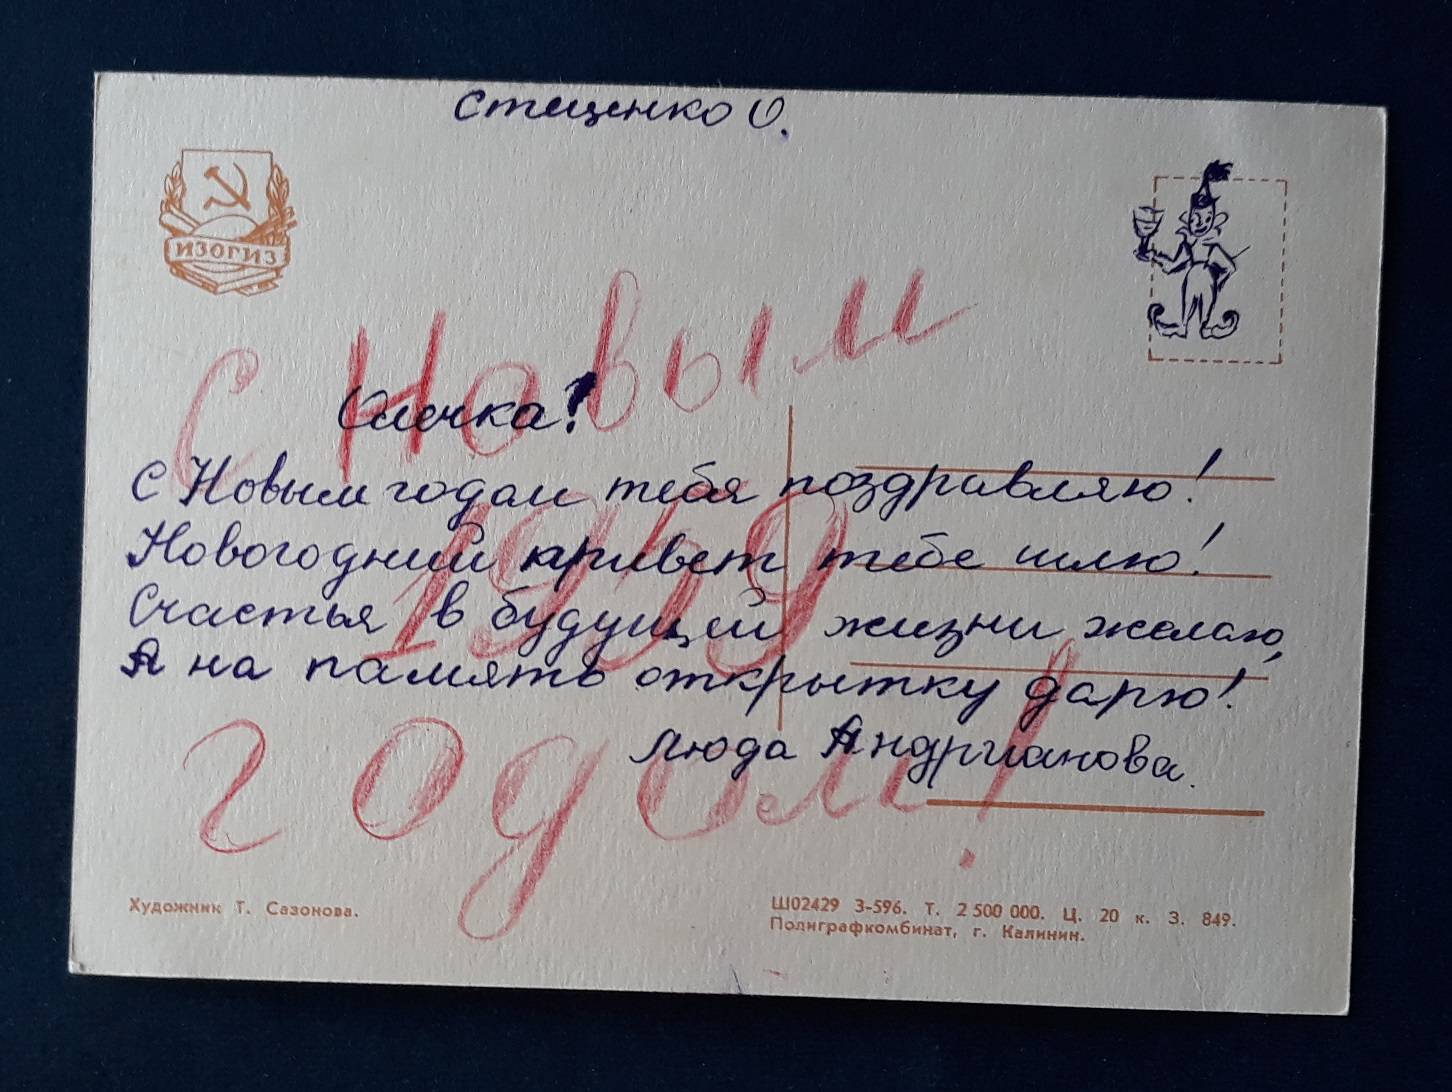 Стеценко О.
ИЗОГИЗ
С Новым
1959
годом!
Олечка!
С Новым годом тебя поздравляю!
Новогодний привет тебе шлю!
Счастья в будущей жизни желаю,
А на память открытку дарю!
Люда Андрианова.
Художник Т. Сазонова.
Ш02429 3-596. Т. 2 500 000. Ц. 20 к. З. 849.
Полиграфкомбинат, г. Калинин.